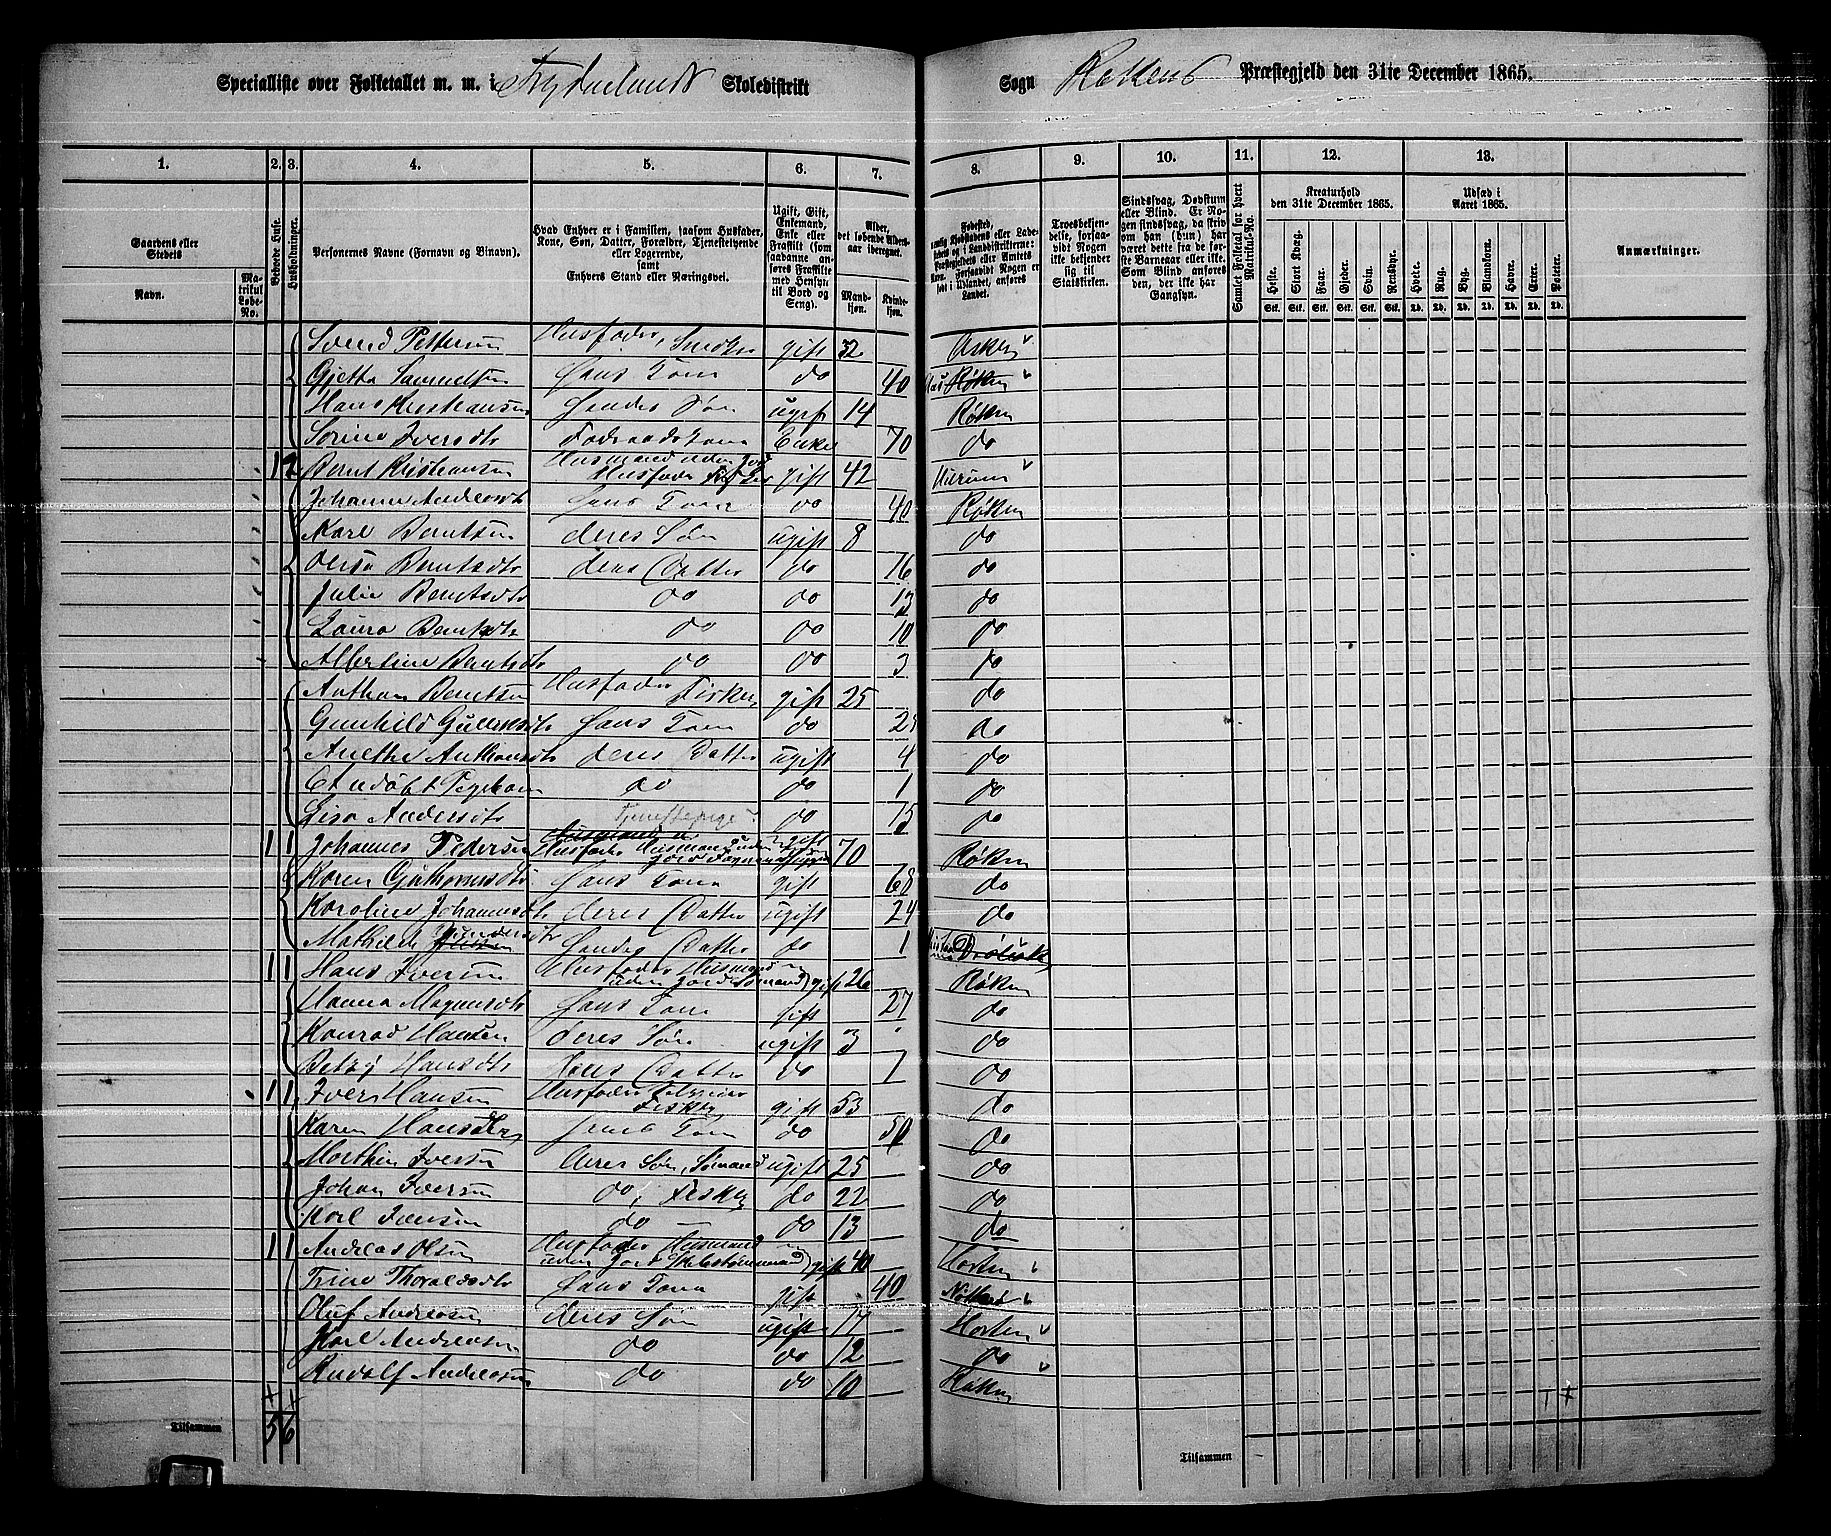 Specialliste over Folketallet m. m. i Skoledistrikt
Sogn Røkens Præstegjeld den 31te December 1865.
1. 2. 3. 4. 5. 6. 7. 8. 9. 10. 11. 12. 13.
Gaardens eller Stedets
Navn.
Matrikul Løbe-No.
Beboede Huse.
Husholdninger.
Personernes Navne (Fornavn og Binavn).
Hvad Enhver er i Familien, saasom Husfader, Kone, Søn, Datter, Forældre, Tjenestetyende eller Logerende, samt Enhvers Stand eller Næringsvei.
Ugift, Gift, Enkemand, Enke eller Fraskilt (som saadanne anføres Fraskilte med Hensyn til Bord og Seng).
Alder, det løbende Aldersaar iberegnet.
Mandkjøn.
Kvindekjøn.
Troesbekjendelse, forsaavidt Nogen ikke bekjender sig til Statskirken.
Sindssvag, Døvstum eller Blind. Er Nogen sindssvag, da skrives om han (hun) har været dette fra de første Barneaar eller ikke. Som Blind anføres den, der ikke har Gangsyn.
Samlet Folketal for hvert Matrikul-No.
Kreaturhold den 31te December 1865.
Heste. Stort Kvæg. Faar. Gjeder. Svin. Rensdyr.
Stk. Stk. Stk. Stk. Stk. Stk.
Udsæd i Aaret 1865.
Hvede. Rug. Byg. Blandkorn. Havre. Erter. Poteter.
Td. Td. Td. Td. Td. Td. Td.
Anmærkninger.
Svend Pettersen Husfader, gift 32 Asker
Samuelsen Hans Kone do 40 Røken
Hans Kristiansen Hendes Søn ugift 14 Røken
Sorine Iversdtr Enke 70 do
1 2 Bernt Kristiansen Husmand uden Jord Husfader gift 42 Hurum
Johanne Andreasdtr Hans Kone do 40 Røken
Karl Berntsen deres Søn ugift 8 do
Berntsdtr deres Datter do 16 do
Julie Berntsdtr do do 13 do
Laura Berntsdtr do do 10 do
Albertine Berntsdtr do do 3 do
Anthon Berntsen Husfader Fisker gift 25 do
Gunhild Hans Kone do do
Anethe Anthonsdtr deres Datter ugift 4 do
do do 1 do
Lisa Andersdtr Tjenestepige do 15 do
1 1 Johannes Pedersen Husfader Husmand uden Jord gift 70 Røken
Karen Hans Kone gift 68 do
Karoline Johannesdtr deres Datter ugift 24 do
Mathilde Hendes Datter do 1
1 1 Hans Iversen Husfader Husmand uden Jord Sømand gift 26 Røken
Hanna Magnusdtr Hans Kone gift 27 do
Konrad Hansen deres Søn ugift 3 do
Betzy Hansdtr deres Datter do 1 do
1 1 Iver Hansen Husfader Selveier Fisker gift 53 do
Karen Hansdtr Hans Kone do 50 do
Morthin Iversen deres Søn, Sømand ugift 25 do
Johan Iversen do, Fisker do 22 do
Karl Iversen do do 13 do
1 1 Andreas Olsen Husfader Husmand uden Jord gift 40 Horten
Trine Thoralsdtr Hans Kone gift 40
Oluf Andreasen deres Søn ugift 17 Horten
Karl Andreasen do do 12 do
Rudolf Andreasen do do 10 Røken
Tilsammen 5 6
Tilsammen